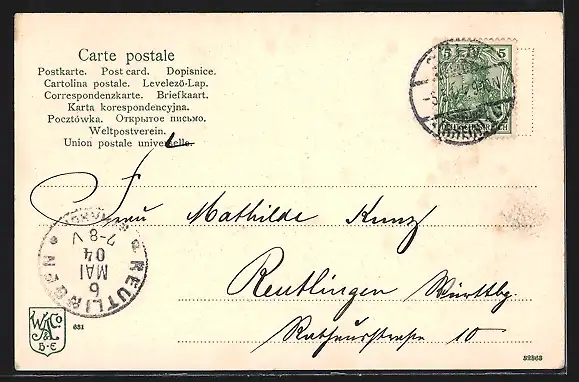 Carte postale
Postkarte. Post card. Dopisnice.
Cartolina postale. Levelező-Lap.
Correspondenzkarte. Briefkaart.
Karta korespondencyjna.
Pocztówka. Открытое письмо.
Weltpostverein.
Union postale universelle.
5 5
REICH
Frau Mathilde Kunz
Reutlingen Württbg.
Rathausstrasse 10
REUTLINGEN
6
MAI
04
7-8 V
W & Co
B-E
631
32863